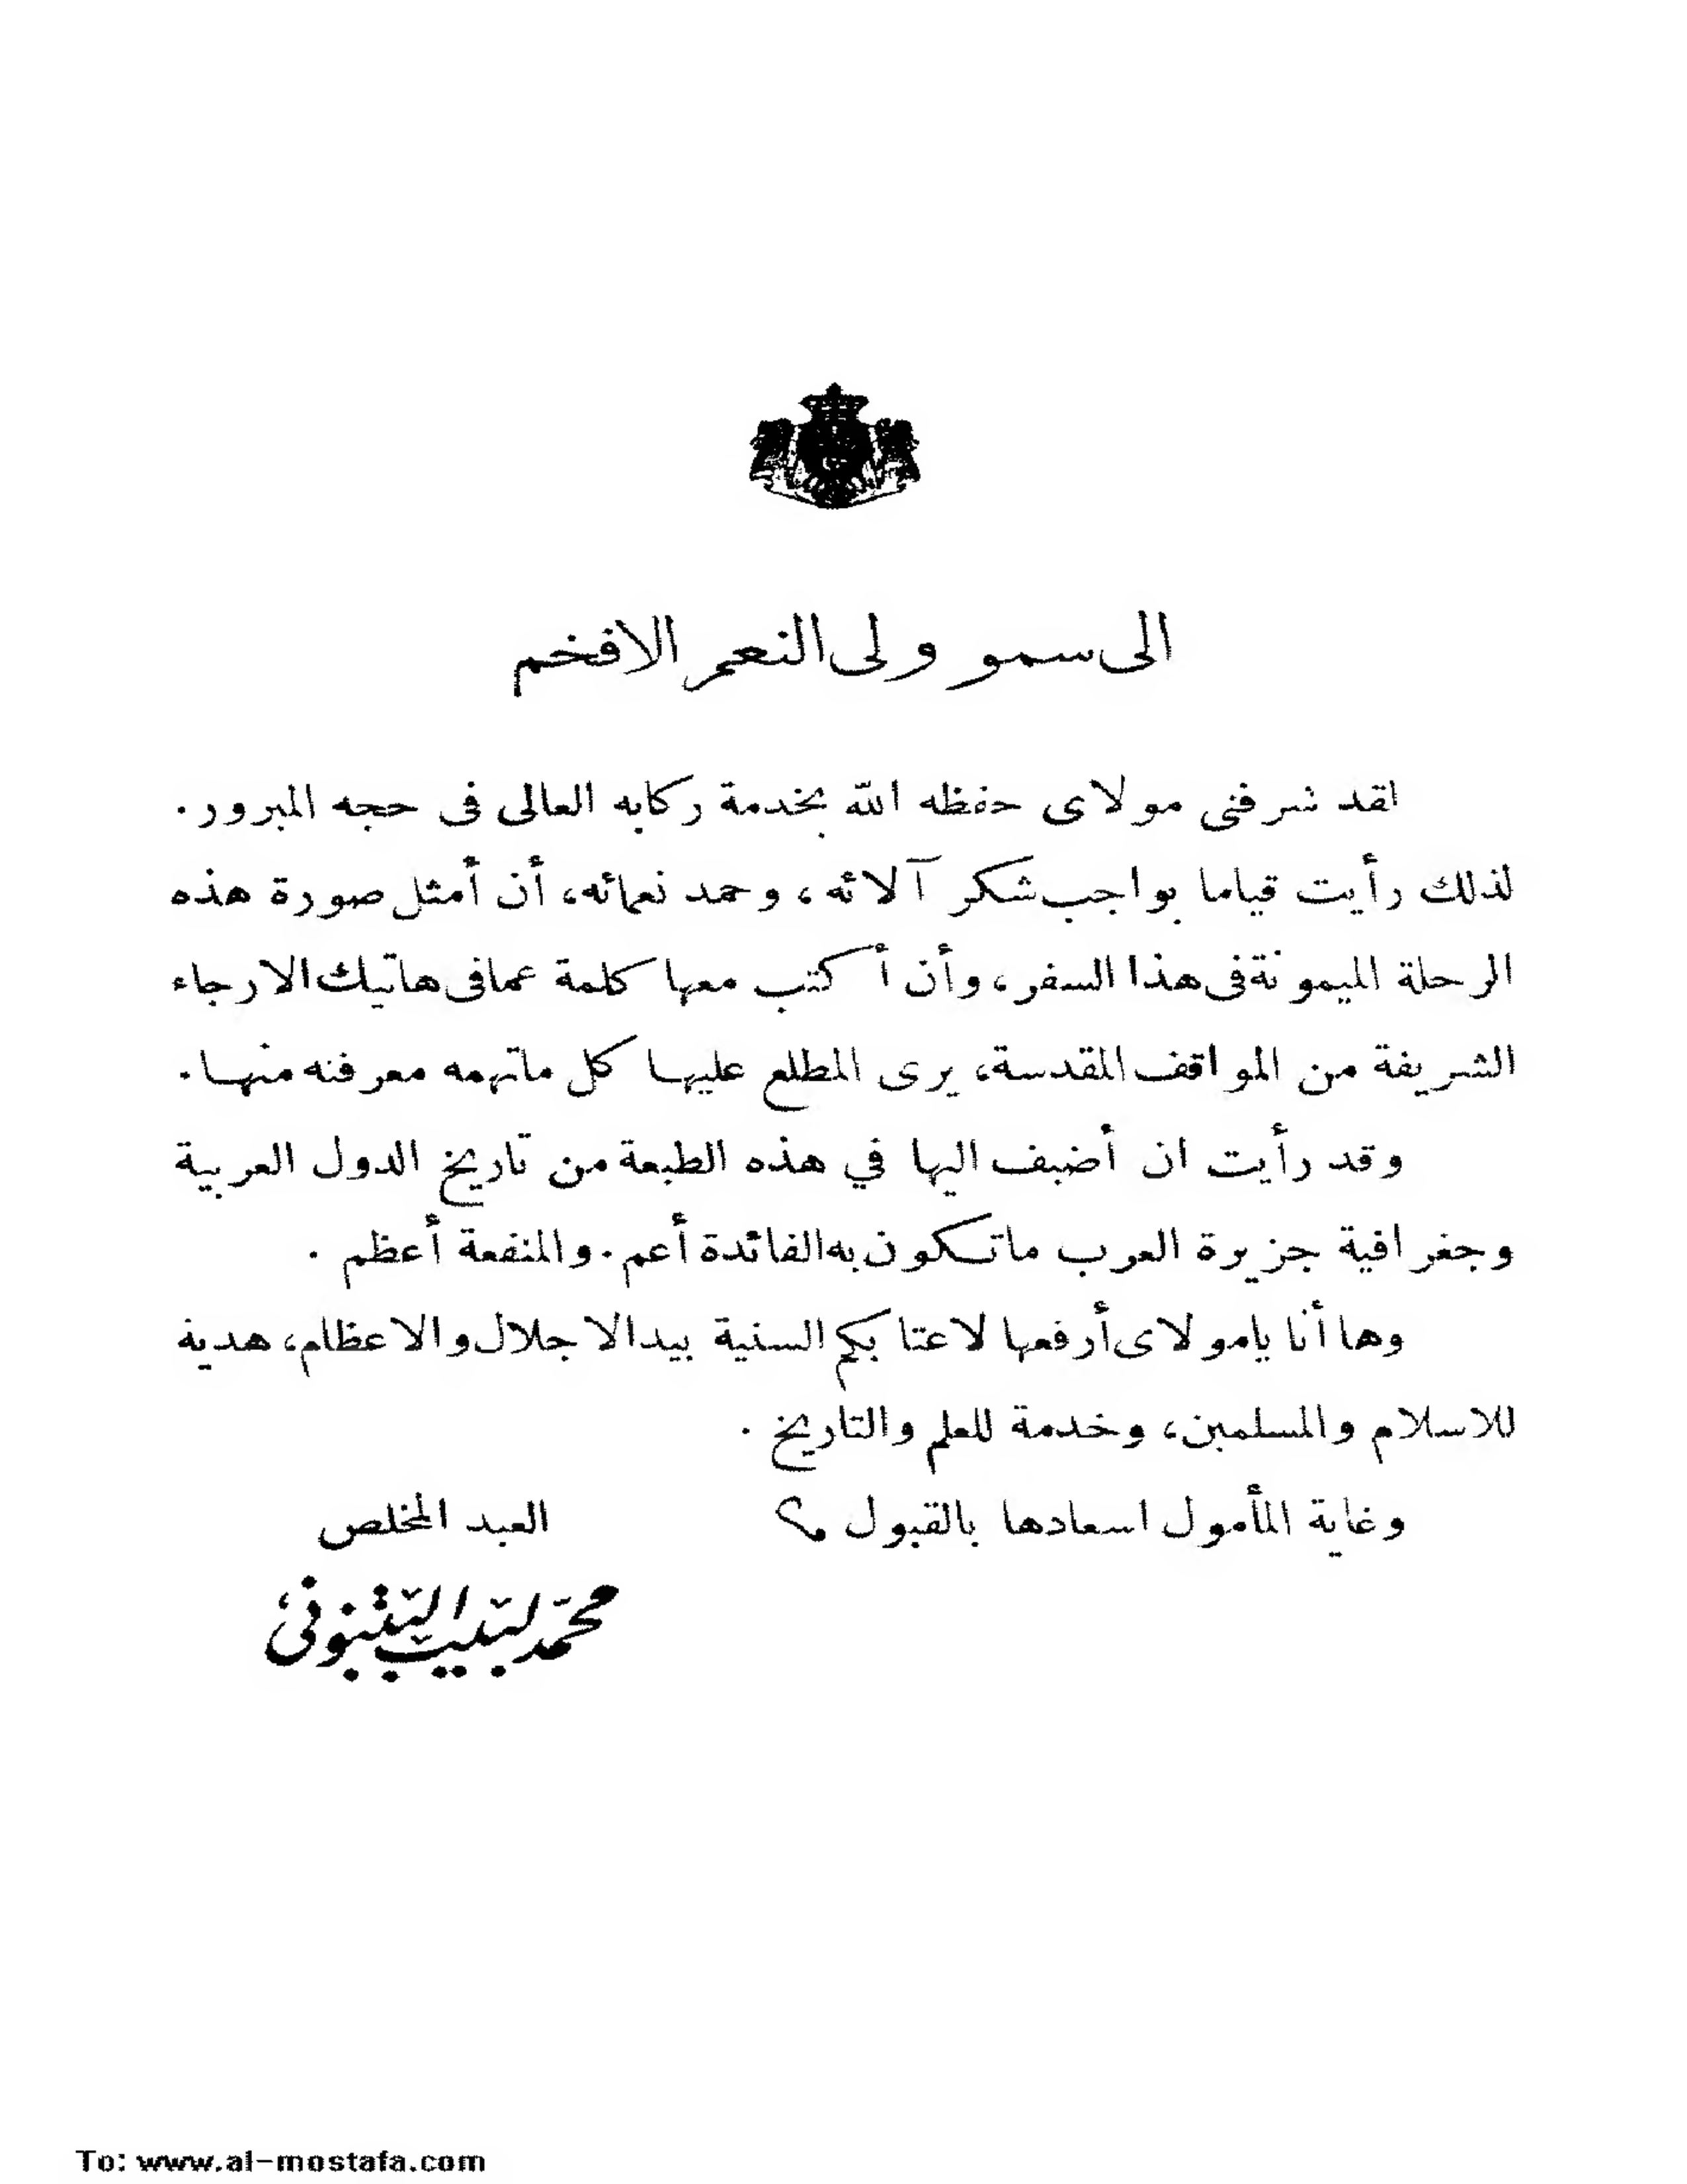 الى سمو ولى النعم الافخم
لقد شرفنى مولاى حفظه الله بخدمة ركابه العالى فى حجه المبرور .
لذلك رأيت قياما بواجب شكر آلائه ، وحمد نعمائه، أن أمثل صورة هذه
الرحلة الميمونة فى هذا السفر، وأن أكتب معها كلمة عما فى هاتيك الارجاء
الشريفة من المواقف المقدسة، يرى المطلع عليها كل ماتهمه معرفته منها .
وقد رأيت ان أضيف اليها في هذه الطبعة من تاريخ الدول العربية
وجغرافية جزيرة العرب ماتكون به الفائدة أعم . والمنفعة أعظم .
وها أنا يامولاى أرفعها لاعتابكم السنية بيد الاجلال والاعظام، هدية
للاسلام والمسلمين، وخدمة للعلم والتاريخ .
وغاية المأمول اسعادها بالقبول
العبد المخلص
محمد لبيب البتنونى
To: www.al-mostafa.com